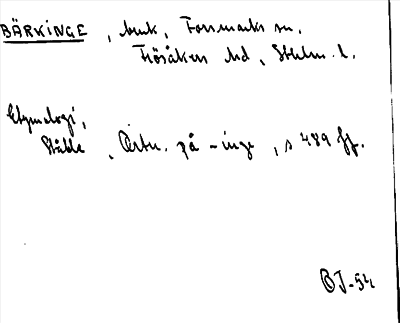 BÄRKINGE, bruk, Forsmarks sn,
Frösåkers hd, Sthlm. l.
Etymologi,
Ståhle, Ortn. på -inge, s 489 ff.
BJ-54